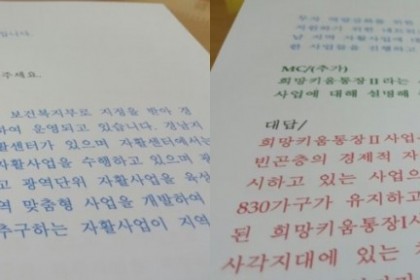 입니다.
주세요.
보건복지부로 지정을 받아 경
하여 운영되고 있습니다. 경남지
활센터가 있으며 자활센터에서는
자활사업을 수행하고 있으며 광
고 광역단위 자활사업을 육성
역 맞춤형 사업을 개발하여
추구하는 자활사업이 지역
지원하기 위한
남 지역 자활사업에
련 사업들을 진행하고
MC/(추가)
희망키움통장Ⅱ라는
사업에 대해 설명해
대답/
희망키움통장Ⅱ사업은
빈곤층의 경제적 자
시하고 있는 사업으
830가구가 유지하고
된 희망키움통장Ⅰ사
사각지대에 있는